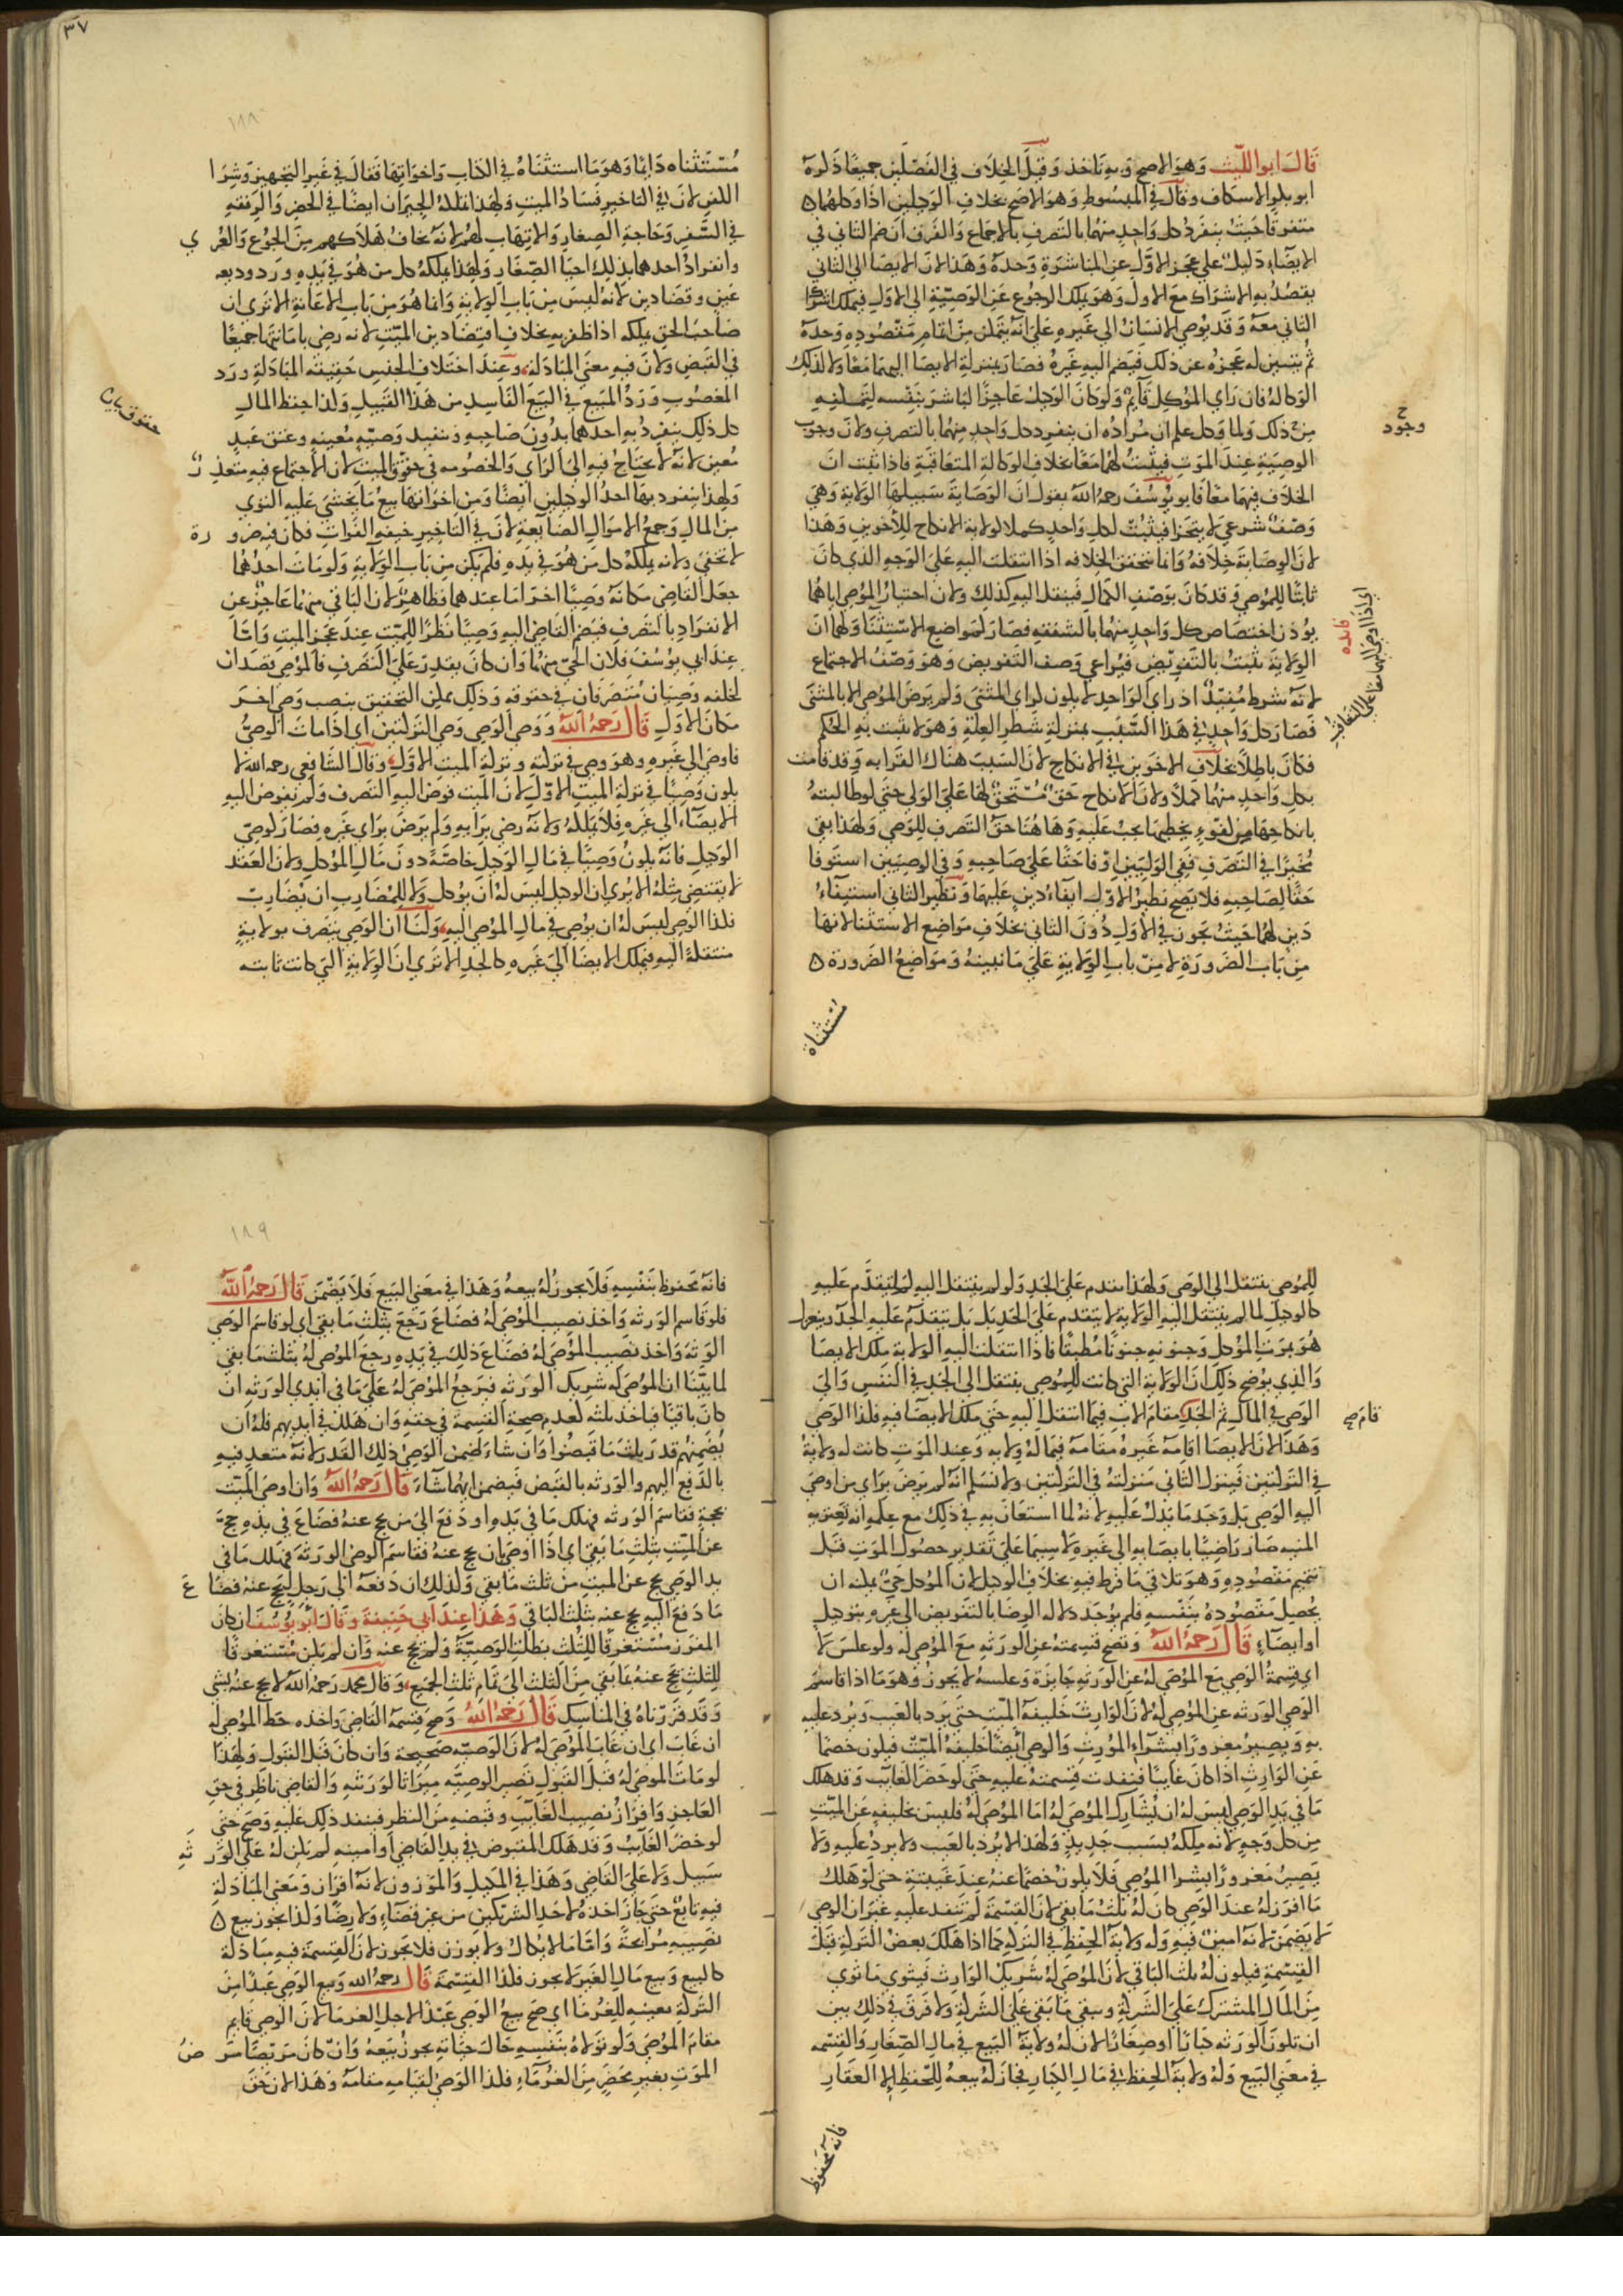 قال ابو الليث وهو الاصح وبه ناخذ وقيل الخلاف في الفصلين جميعا ذكره
ابو بكر الاسكاف وقال في المبسوط وهو الاصح بخلاف الوكيلين اذا وكلهما
متفرقا حيث ينفرد كل واحد منهما بالتصرف بالاجماع والفرق ان ضم الثاني في
الايصاء دليل على عجز الاول عن المباشرة وحده وهذا لان الايصا الى الثاني
يقصد به الاشراك مع الاول وهو يملك الرجوع عن الوصية الى الاول فيملك اشراك
الثاني معه وقد يوصي الانسان الى غيره على انه يتمكن من اتمام مقصوده وحده
ثم يتبين له عجزه عن ذلك فيضم اليه غيره فصار بمنزلة الايصا اليهما معا ولا كذلك
الوكالة فان راي الموكل قائم ولو كان الوكيل عاجزا لباشر بنفسه لتمكنه
من ذلك ولما وكل علم ان مراده ان ينفرد كل واحد منهما بالتصرف ولان وجوب
الوصية عند الموت فيثبت لهما معا بخلاف الوكالة المتعاقبة فاذا ثبت ان
الخلاف فيهما معا فابو يوسف رحمه الله يقول ان الوصاية سبيلها الولاية وهي
وصف شرعي لا يتجزا فيثبت لكل واحد كملا كولاية الانكاح للاخوين وهذا
لان الوصاية خلافة وانما تتحقق الخلافه اذا انتقلت اليه على الوجه الذي كان
ثابتا للموصي وقد كان بوصف الكمال فينتقل اليه كذلك ولان اختيار الموصي اياهما
يوذن اختصاص كل واحد منهما بالشفقه فصار كمواضع الاستثنا ولهما ان
الولاية تثبت بالتفويض فيراعي وصف التفويض وهو وصف الاجتماع
لانه شرط مفيد اذ راي الواحد لا يكون كراي المثنى ولم يرض الموصي الا بالمثنى
فصار كل واحد في هذا السبب بمنزلة شطر العلة وهو لا يثبت به الحكم
فكان باطلا بخلاف الاخوين في الانكاح لان السبب هناك القرابه وقد قامت
بكل واحد منهما كملا ولان الانكاح حق مستحق لها على الولي حتى لو طالبته
بانكاحها من كفوء يخطبها يجب عليه وهاهنا حق التصرف للوصي ولهذا بقي
مخيرا في التصرف ففي الوليين اوفا حقا على صاحبه وفي الوصيين استوفا
حقا لصاحبه فلا يصح نظير الاول ايفاء دين عليهما ونظير الثاني استيفاء
دين لهما حيث يجوز في الاول دون الثاني بخلاف مواضع الاستثنا لانها
من باب الضرورة لا من باب الولاية على ما نبينه ومواضع الضرورة
مستثناة
ح
وجود
فايده
اي اذا اوصى اليهما معا على التعاقب
٣٧
١٨٨
مستثناه دايما وهو ما استثناه في الكتاب واخواتها فقال في غير التجهيز وشرا
الكفن لان في التاخير فساد الميت ولهذا يملكه الجيران ايضا في الحضر والرفقه
في السفر وحاجة الصغار والاتهاب لهم لانه يخاف هلاكهم من الجوع والعري
وانفراد احدهما بذلك احيا الصغار ولهذا يملكه كل من هو في يده ورد وديعه
عين وقضا دين لانه ليس من باب الولاية وانما هو من باب الاعانة الا ترى ان
صاحب الحق يملكه اذا ظفر به بخلاف اقتضا دين الميت لانه رضي بامانتهما جميعا
في القبض ولان فيه معنى المبادلة وعند اختلاف الجنس حقيقة المبادلة ورد
المغصوب ورد المبيع في البيع الفاسد من هذا القبيل وكذا حفظ المال
كل ذلك ينفرد به احدهما بدون صاحبه وتنفيذ وصيه معينه وعتق عبد
معين لانه لا يحتاج فيه الى الراي والخصومه في حقوق الميت لان الاجتماع فيه متعذر
ولهذا ينفرد بها احد الوكيلين ايضا ومن اخواتها بيع ما يخشى عليه التوي
من المال وجمع الاموال الضائعة لان في التاخير خيفه الفوات فكان فيه ضرورة
لا تخفى ولانه يملكه كل من هو في يده فلم يكن من باب الولاية ولو مات احدهما
جعل القاضي مكانه وصيا اخر اما عندهما فظاهر لان الباقي منهما عاجز عن
الانفراد بالتصرف فيضم القاضي اليه وصيا نظرا للميت عند عجز الميت واما
عند ابي يوسف فلان الحي منهما وان كان يقدر على التصرف فالموصي قصد ان
يخلفه وصيان متصرفان في حقوقه وذلك ممكن التحقيق بنصب وصي اخر
مكان الاول قال رحمه الله ووصي الوصي وصي التركتين اي اذا مات الوصي
فاوصى الى غيره فهو وصي في تركته وتركة الميت الاول وقال الشافعي رحمه الله لا
يكون وصيا في تركة الميت الاول لان الميت فوض اليه التصرف ولم يفوض اليه
الايصاء الى غيره فلا يملكه ولانه رضي برايه ولم يرض براي غيره فصار كوصي
الوكيل فانه يكون وصيا في مال الوكيل خاصة دون مال الموكل ولان العقد
لا يقتضي مثله الا يرى ان الوكيل ليس له ان يوكل ولا للمضارب ان يضارب
فكذا الوصي ليس له ان يوصي في مال الموصي اليه ولنا ان الوصي يتصرف بولاية
منتقلة اليه فيملك الايصا الى غيره كالجد الا ترى ان الولاية التي كانت ثابته
حقوق بيان
للموصي ينتقل الى الوصي ولهذا يقدم على الجد ولو لم ينتقل اليه لم يتقدم عليه
كالوكيل لما لم ينتقل اليه الولاية لا يتقدم على الجد بل بل يتقدم عليه الجد وينعزل
هو بموت الموكل وجنونه جنونا مطبقا فاذا انتقلت اليه الولاية ملك الايصا
والذي يوضح ذلك ان الولاية التي كانت للموصي ينتقل الى الجد في النفس والى
الوصي في المال ثم الجد مقام الاب فيما انتقل اليه حتى ملك الايصا فيه فكذا الوصي
وهذا لان الايصا اقامة غيره مقامه فيما له ولايه وعند الموت كانت له ولاية
في التركتين فينزل الثاني منزلته في التركتين ولا نسلم انه لم يرض براي من اوصى
اليه الوصي بل وجد ما يدل عليه لانه لما استعان به في ذلك مع علمه انه تعتريه
المنيه صار راضيا بايصايه الى غيره لا سيما على تقدير حصول الموت قبل
تتميم مقصوده وهو تلافي ما فرط فيه بخلاف الوكيل لان الموكل حي يمكنه ان
يحصل مقصوده بنفسه فلم يوجد دلالة الرضا بالتفويض الى غيره بتوكيل
او ايصاء قال رحمه الله وتصح قسمته عن الورثه مع الموصى له ولو عكس لا
اي قسمة الوصي مع الموصى له عن الورثه جايزة وعكسه لا يجوز وهو ما اذا قاسم
الوصي الورثه عن الموصى له لان الوارث خليفة الميت حتى يرد بالعيب ويرد عليه
به ويصير مغرورا بشراء المورث والوصي ايضا خليفة الميت فيكون خصما
عن الوارث اذا كان غايبا فنفدت قسمته عليه حتى لو حضر الغائب وقد هلك
ما في يد الوصي ليس له ان يشارك الموصى له اما الموصى له فليس بخليفه عن الميت
من كل وجه لانه ملكه بسبب جديد ولهذا لا يرد بالعيب ولا يرد عليه ولا
يصير مغرورا بشرا الموصي فلا يكون خصما عنه عند غيبته حتى لو هلك
ما افرز له عند الوصي كان له ثلث ما بقي لان القسمة لم تنفد عليه غير ان الوصي
لا يضمن لانه امين فيه وله ولاية الحفظ في التركه كما اذا هلك بعض التركة قبل
القسمة فيكون له ثلث الباقي لان الموصى له شريك الوارث فيتوي ما توي
من المال المشترك على الشركة ويبقى ما بقي على الشركة ولا فرق في ذلك بين
ان تكون الورثه كبارا او صغارا لان له ولاية البيع في مال الصغار والقسمه
في معنى البيع وله ولاية الحفظ في مال الكبار فجاز له بيعه للتحفظ الا العقار
فانه محفوظ
قام صح
١٨٩
فانه محفوظ بنفسه فلا يجوز له بيعه وهذا في معنى البيع فلا يضمن قال رحمه الله
فلو قاسم الورثه واخذ نصيب الموصى له فضاع رجع بثلث ما بقي اي لو قاسم الوصي
الورثه واخذ نصيب الموصى له فضاع ذلك في يده رجع الموصى له بثلث ما بقي
لما بينا ان الموصى له شريك الورثه فيرجع الموصى له على ما في ايدي الورثه ان
كان باقيا فياخذ ثلثه لعدم صحة القسمة في حقه وان هلك في ايديهم فله ان
يضمنهم قدر ثلث ما قبضوا وان شاء ضمن الوصي ذلك القدر لانه متعد فيه
بالدفع اليهم والورثه بالقبض فيضمن ايهما شاء قال رحمه الله وان اوصى الميت
بحجة فقاسم الورثه فهلك ما في يده او دفع الى من يحج عنه فضاع في يده حج
عن الميت بثلث ما بقي اي اذا اوصى بان يحج عنه فقاسم الوصي الورثه فهلك ما في
يد الوصي يحج عن الميت من ثلث ما بقي وكذلك ان دفعه الى رجل ليحج عنه فضاع
ما دفع اليه يحج عنه بثلث الباقي وهذا عند ابي حنيفة وقال ابو يوسف ان كان
المفرز مستغرقا للثلث بطلت الوصية ولم يحج عنه وان لم يكن مستغرقا
للثلث يحج عنه بما بقي من الثلث الى تمام ثلث الجميع وقال محمد رحمه الله لا يحج عنه بشي
وقد قررناه في المناسك قال رحمه الله وصح قسمة القاضي واخذه حظ الموصى له
ان غاب اي ان غاب الموصى له لان الوصيه صحيحة وان كان قبل القبول ولهذا
لو مات الموصى له قبل القبول تصير الوصيه ميراثا لورثته والقاضي ناظر في حق
العاجز وافراز نصيب الغايب وقبضه من النظر فينفد ذلك عليه وصح حتى
لو حضر الغائب وقد هلك المقبوض في يد القاضي او امينه لم يكن له على الورثه
سبيل ولا على القاضي وهذا في المكيل والموزون لانه افراز ومعنى المبادلة
فيه تابع حتى جاز اخذه لاحد الشريكين من غير قضاء ولا رضا وكذا يجوز بيع
نصيبه مرابحة واما ما لا يكال ولا يوزن فلا يجوز لان القسمة فيه مبادلة
كالبيع وبيع مال الغير لا يجوز فكذا القسمة قال رحمه الله وبيع الوصي عبدا من
التركة بغيبة الغرما اي صح بيع الوصي عبدا لاجل الغرما لان الوصي قايم
مقام الموصي ولو تولاه بنفسه حال حياته يجوز بيعه وان كان مريضا مرض
الموت بغير محضر من الغرماء فكذا الوصي لقيامه مقامه وهذا لان حق